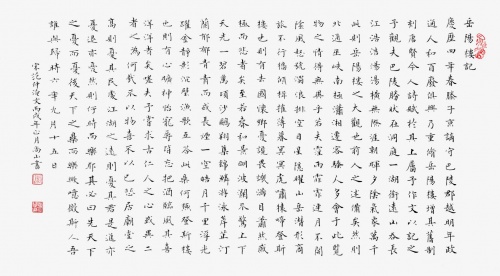 岳陽樓記
慶歷四年春滕子京謫守巴陵郡越明年政
通人和百廢俱興乃重脩岳陽樓增其舊制
刻唐賢今人詩賦於其上屬予作文以記之
予觀夫巴陵勝狀在洞庭一湖銜遠山吞長
江浩浩湯湯橫無際涯朝暉夕陰氣象萬千
此則岳陽樓之大觀也前人之述備矣然則
北通巫峽南極瀟湘遷客騷人多會于此覽
物之情得無異乎若夫霪雨霏霏連月不開
陰風怒號濁浪排空日星隱耀山岳潛形商
旅不行檣傾楫摧薄暮冥冥虎嘯猿啼登斯
樓也則有去國懷鄉憂讒畏譏滿目蕭然感
極而悲者矣至若春和景明波瀾不驚上下
天光一碧萬頃沙鷗翔集錦鱗游泳岸芷汀
蘭郁郁青青而或長煙一空皓月千里浮光
躍金靜影沉璧漁歌互答此樂何極登斯樓
也則有心曠神怡寵辱皆忘把酒臨風其喜
洋洋者矣嗟夫予嘗求古仁人之心或異二
者之為何哉不以物喜不以己悲居廟堂之
高則憂其民處江湖之遠則憂其君是進亦
憂退亦憂然則何時而樂耶其必曰先天下
之憂而憂後天下之樂而樂歟噫微斯人吾
誰與歸時六年九月十五日
宋范仲淹文丙戌年正月高山書